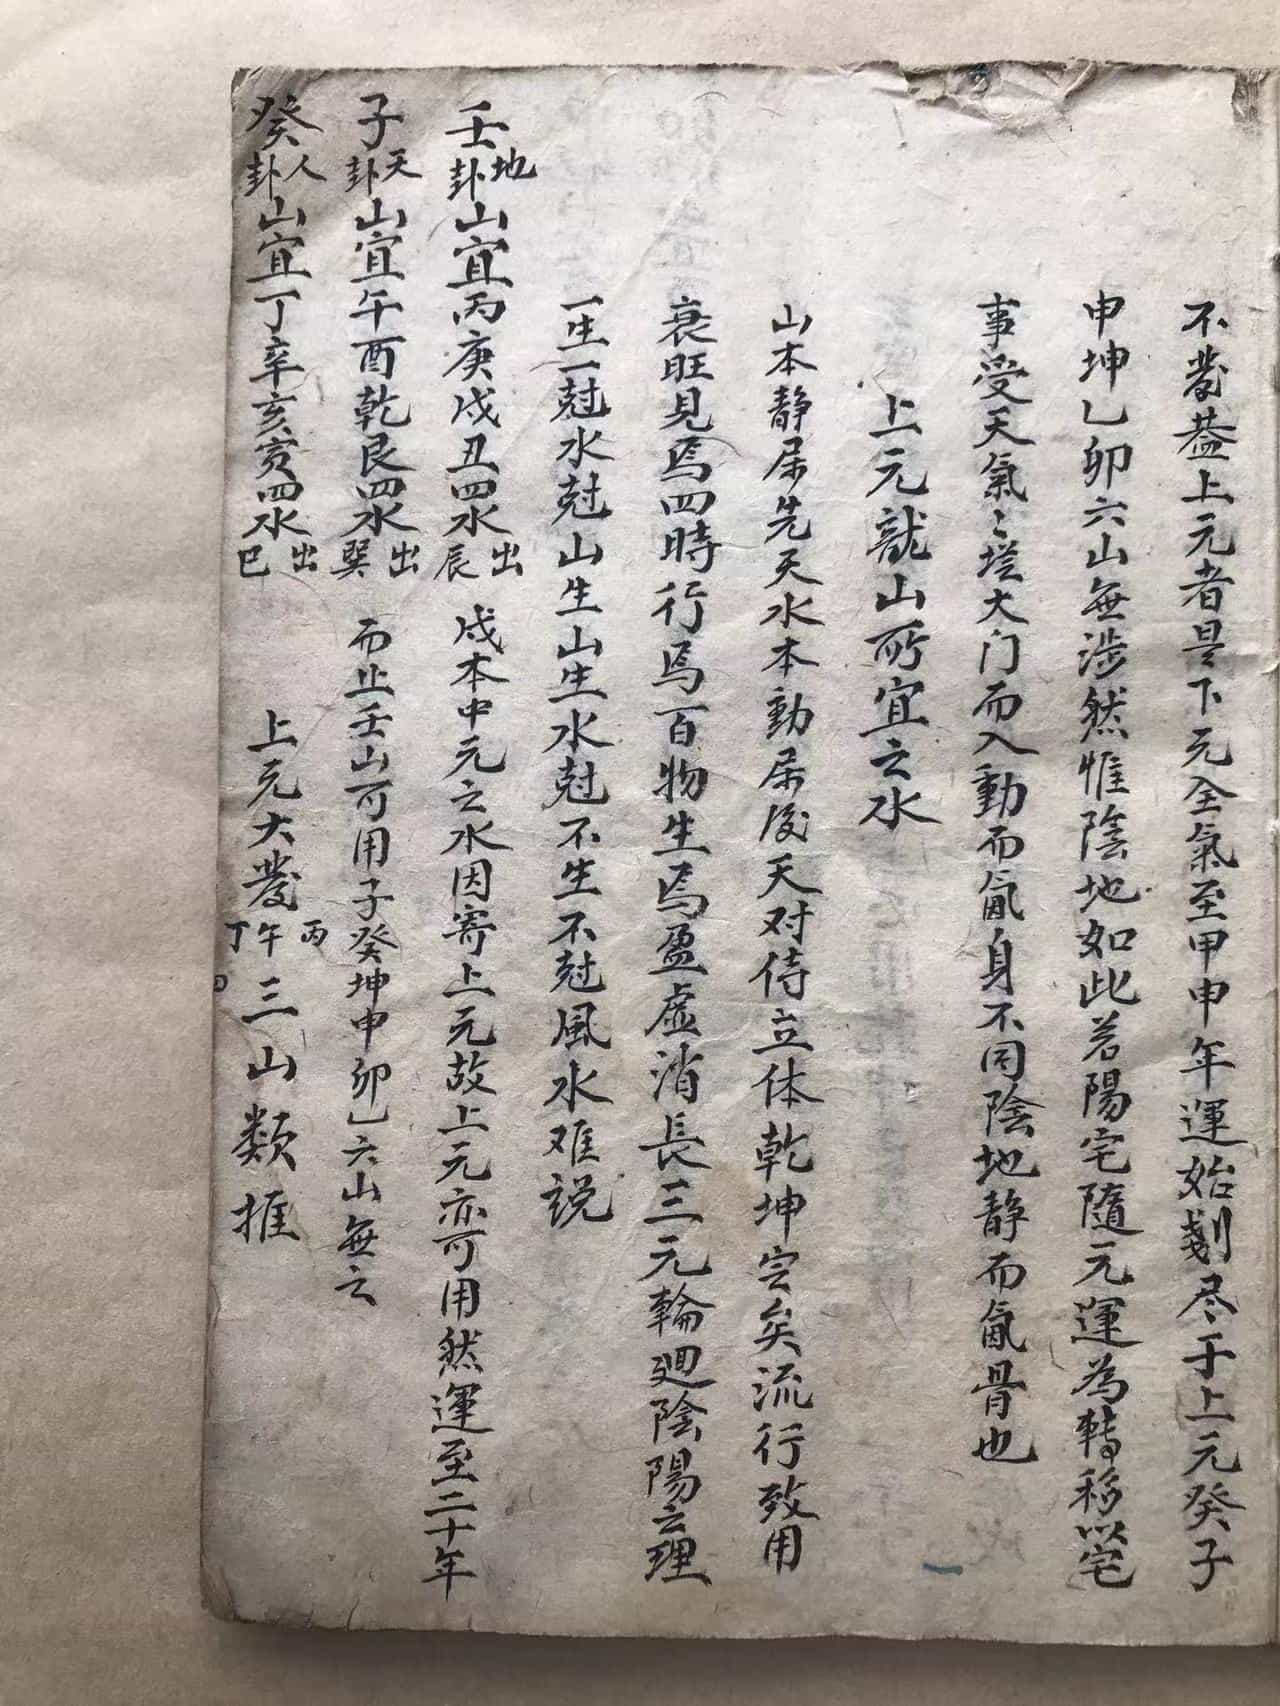 不發蓋上元者是下元全氣至甲申年運始剗尽于上元癸子
申坤乙卯六山無涉然惟陰地如此若陽宅隨元運為轉移以宅
事受天氣〻從大门而入動而氤身不同陰地静而氤骨也
上元龍山所宜之水
山本静属先天水本動属後天对待立体乾坤定矣流行致用
衰旺見焉四時行焉百物生焉盈虚消長三元輪廻陰陽之理
一生一尅水尅山生山生水尅不生不尅風水难説
壬地卦山宜丙庚戌丑四水出辰 戌本中元之水因寄上元故上元亦可用然運至二十年
子天卦山宜午酉乾艮四水出巽 而止壬山可用子癸坤申卯乙六山無之
癸人卦山宜丁辛亥寅四水出巳 上元大發丙午丁三山類推